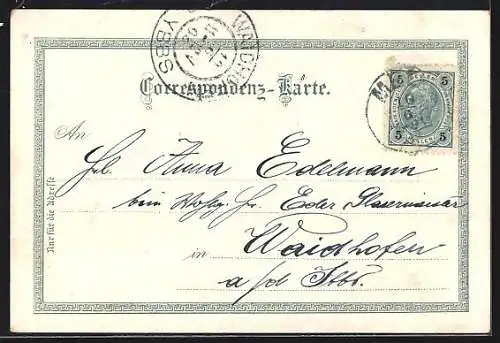 WAIDHO
YBBS
Correspondenz-Karte.
5 5
5 5
An
Frl. Anna Edelmann
beim Wohlg. Hr. Eder
in Waidhofen
a/d Ibbs.
Nur für die Adresse